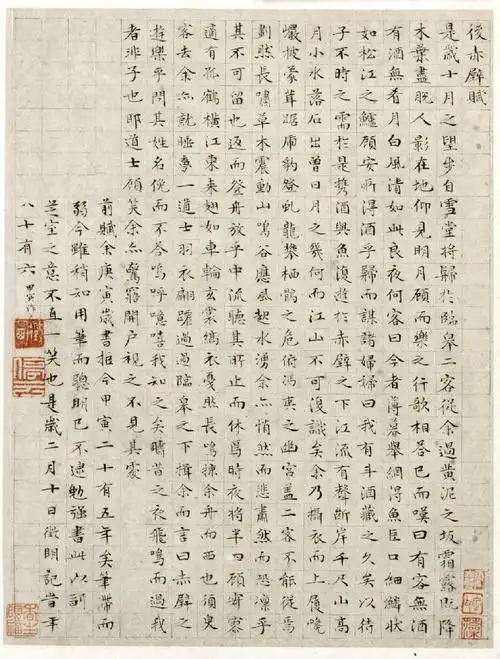 後赤壁賦
是歲十月之望步自雪堂將歸於臨皋二客從余過黃泥之坂霜露既降
木葉盡脫人影在地仰見明月顧而樂之行歌相答已而嘆曰有客無酒
有酒無肴月白風清如此良夜何客曰今者薄莫舉網得魚巨口細鱗狀
如松江之鱸顧安所得酒乎歸而謀諸婦婦曰我有斗酒藏之久矣以待
子不時之需於是攜酒與魚復遊於赤壁之下江流有聲斷岸千尺山高
月小水落石出曾日月之幾何而江山不可復識矣余乃攝衣而上履巉
巖披蒙茸踞虎豹登虬龍攀栖鶻之危俯馮夷之幽宮蓋二客不能從焉
劃然長嘯草木震動山鳴谷應風起水湧余亦悄然而悲肅然而恐凜乎
其不可留也返而登舟放乎中流聽其所止而休焉時夜將半四顧寂寥
適有孤鶴橫江東來翅如車輪玄裳縞衣戛然長鳴掠余舟而西也須臾
客去余亦就睡夢一道士羽衣翩躚過過臨皋之下揖余而言曰赤壁之
遊樂乎問其姓名俛而不答嗚呼噫嘻我知之矣疇昔之夜飛鳴而過我
者非子也耶道士顧笑余亦驚寤開戶視之不見其處
前賦余庚寅歲書抵今甲寅二十有五年矣筆滯而
弱今雖稍知用筆而聰明已不逮勉強書此以詶
芝室之意不直一笑也是歲二月十日徵明記昔年
八十有六